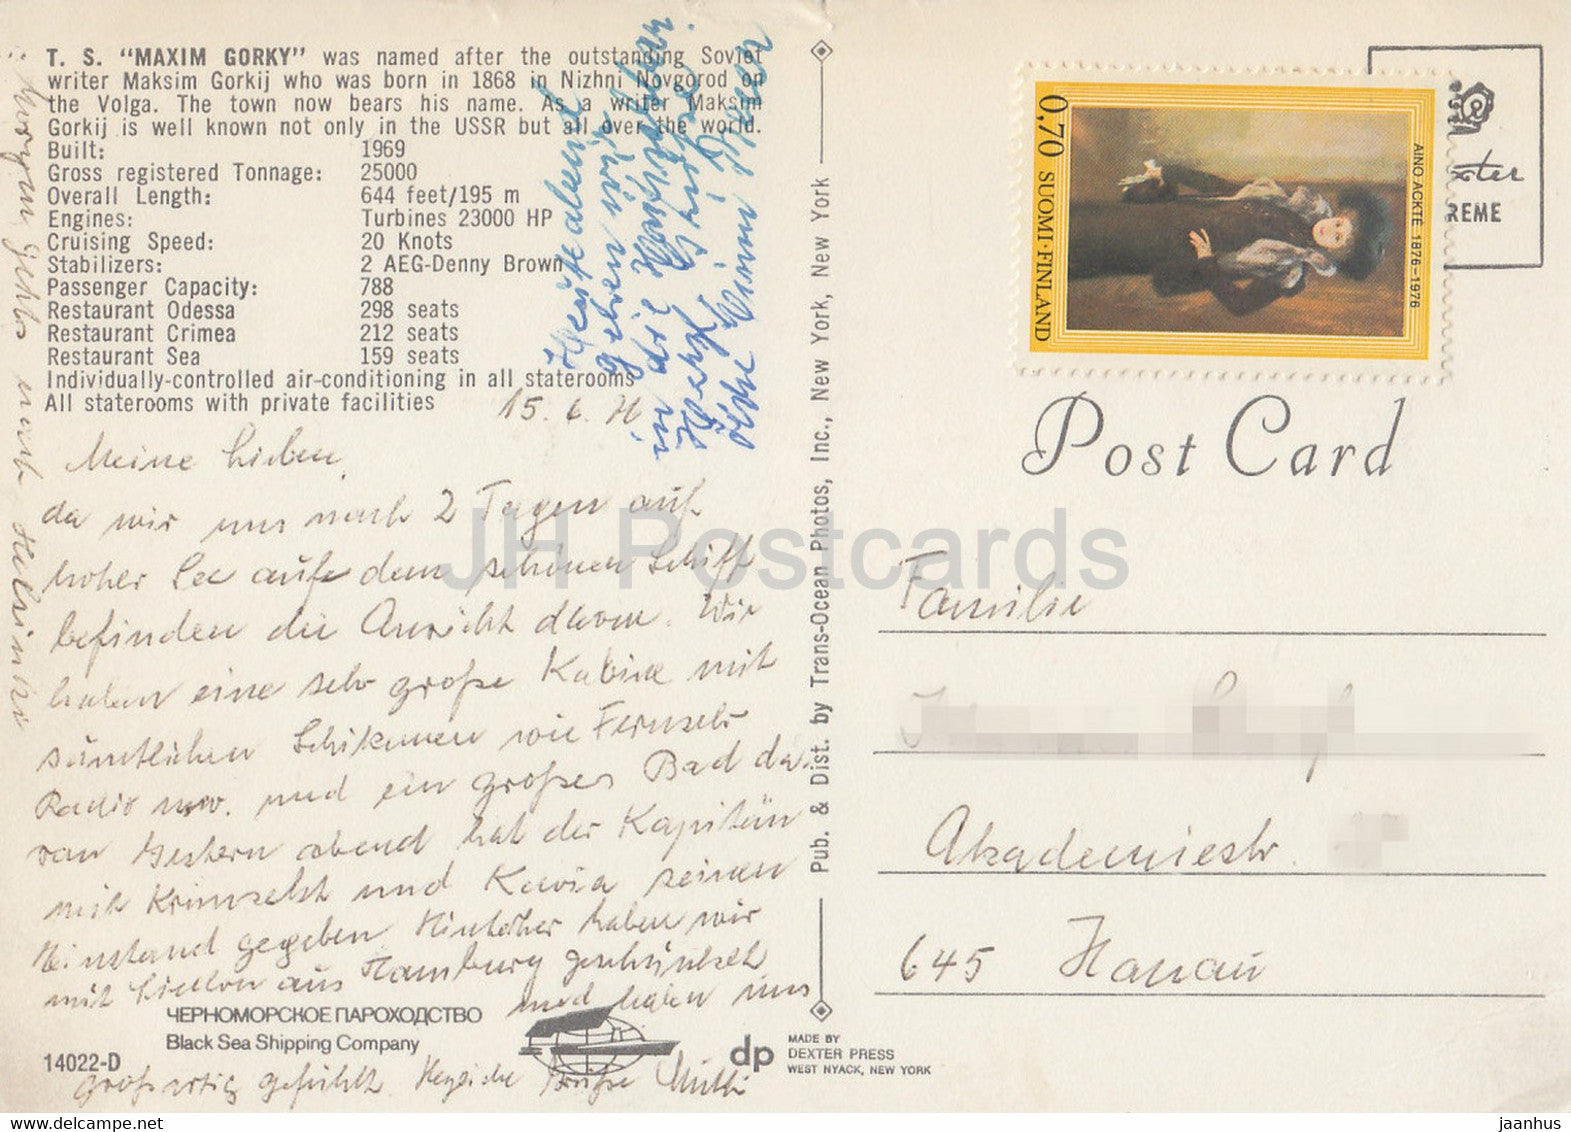 T. S. "MAXIM GORKY" was named after the outstanding Soviet
writer Maksim Gorkij who was born in 1868 in Nizhni Novgorod on
the Volga. The town now bears his name. As a writer Maksim
Gorkij is well known not only in the USSR but all over the world.
Built: 1969
Gross registered Tonnage: 25000
Overall Length: 644 feet/195 m
Engines: Turbines 23000 HP
Cruising Speed: 20 Knots
Stabilizers: 2 AEG-Denny Brown
Passenger Capacity: 788
Restaurant Odessa 298 seats
Restaurant Crimea 212 seats
Restaurant Sea 159 seats
Individually-controlled air-conditioning in all staterooms
All staterooms with private facilities
15. 6. 76
Meine Lieben,
da wir uns nach 2 Tagen auf
hoher See auf dem schönen Schiff
befinden die Ansicht davon. Wir
haben eine sehr große Kabine mit
sämtlichen Schikanen wie Fernseh
Radio usw. und ein großes Bad da
ran Gestern abend hat der Kapitän
mit Krimsekt und Kavia seinen
Einstand gegeben. Hinterher haben wir
mit Leuten aus Hamburg geschunkelt
und haben uns
großartig gefühlt. Herzliche Grüße Mutti
Morgen gehts nach Helsinki
Heute abend
gehen wir
in die
Herzl. Grüße
ЧЕРНОМОРСКОЕ ПАРОХОДСТВО
Black Sea Shipping Company
14022-D
dp
MADE BY
DEXTER PRESS
WEST NYACK, NEW YORK
Pub. & Dist. by Trans-Ocean Photos, Inc., New York, New York, New York
0,70 SUOMI·FINLAND
AINO ACKTÉ 1876-1976
Post Card
Familie
Akademiestr.
645 Hanau
JH Postcards
delcampe.net
jaanhus